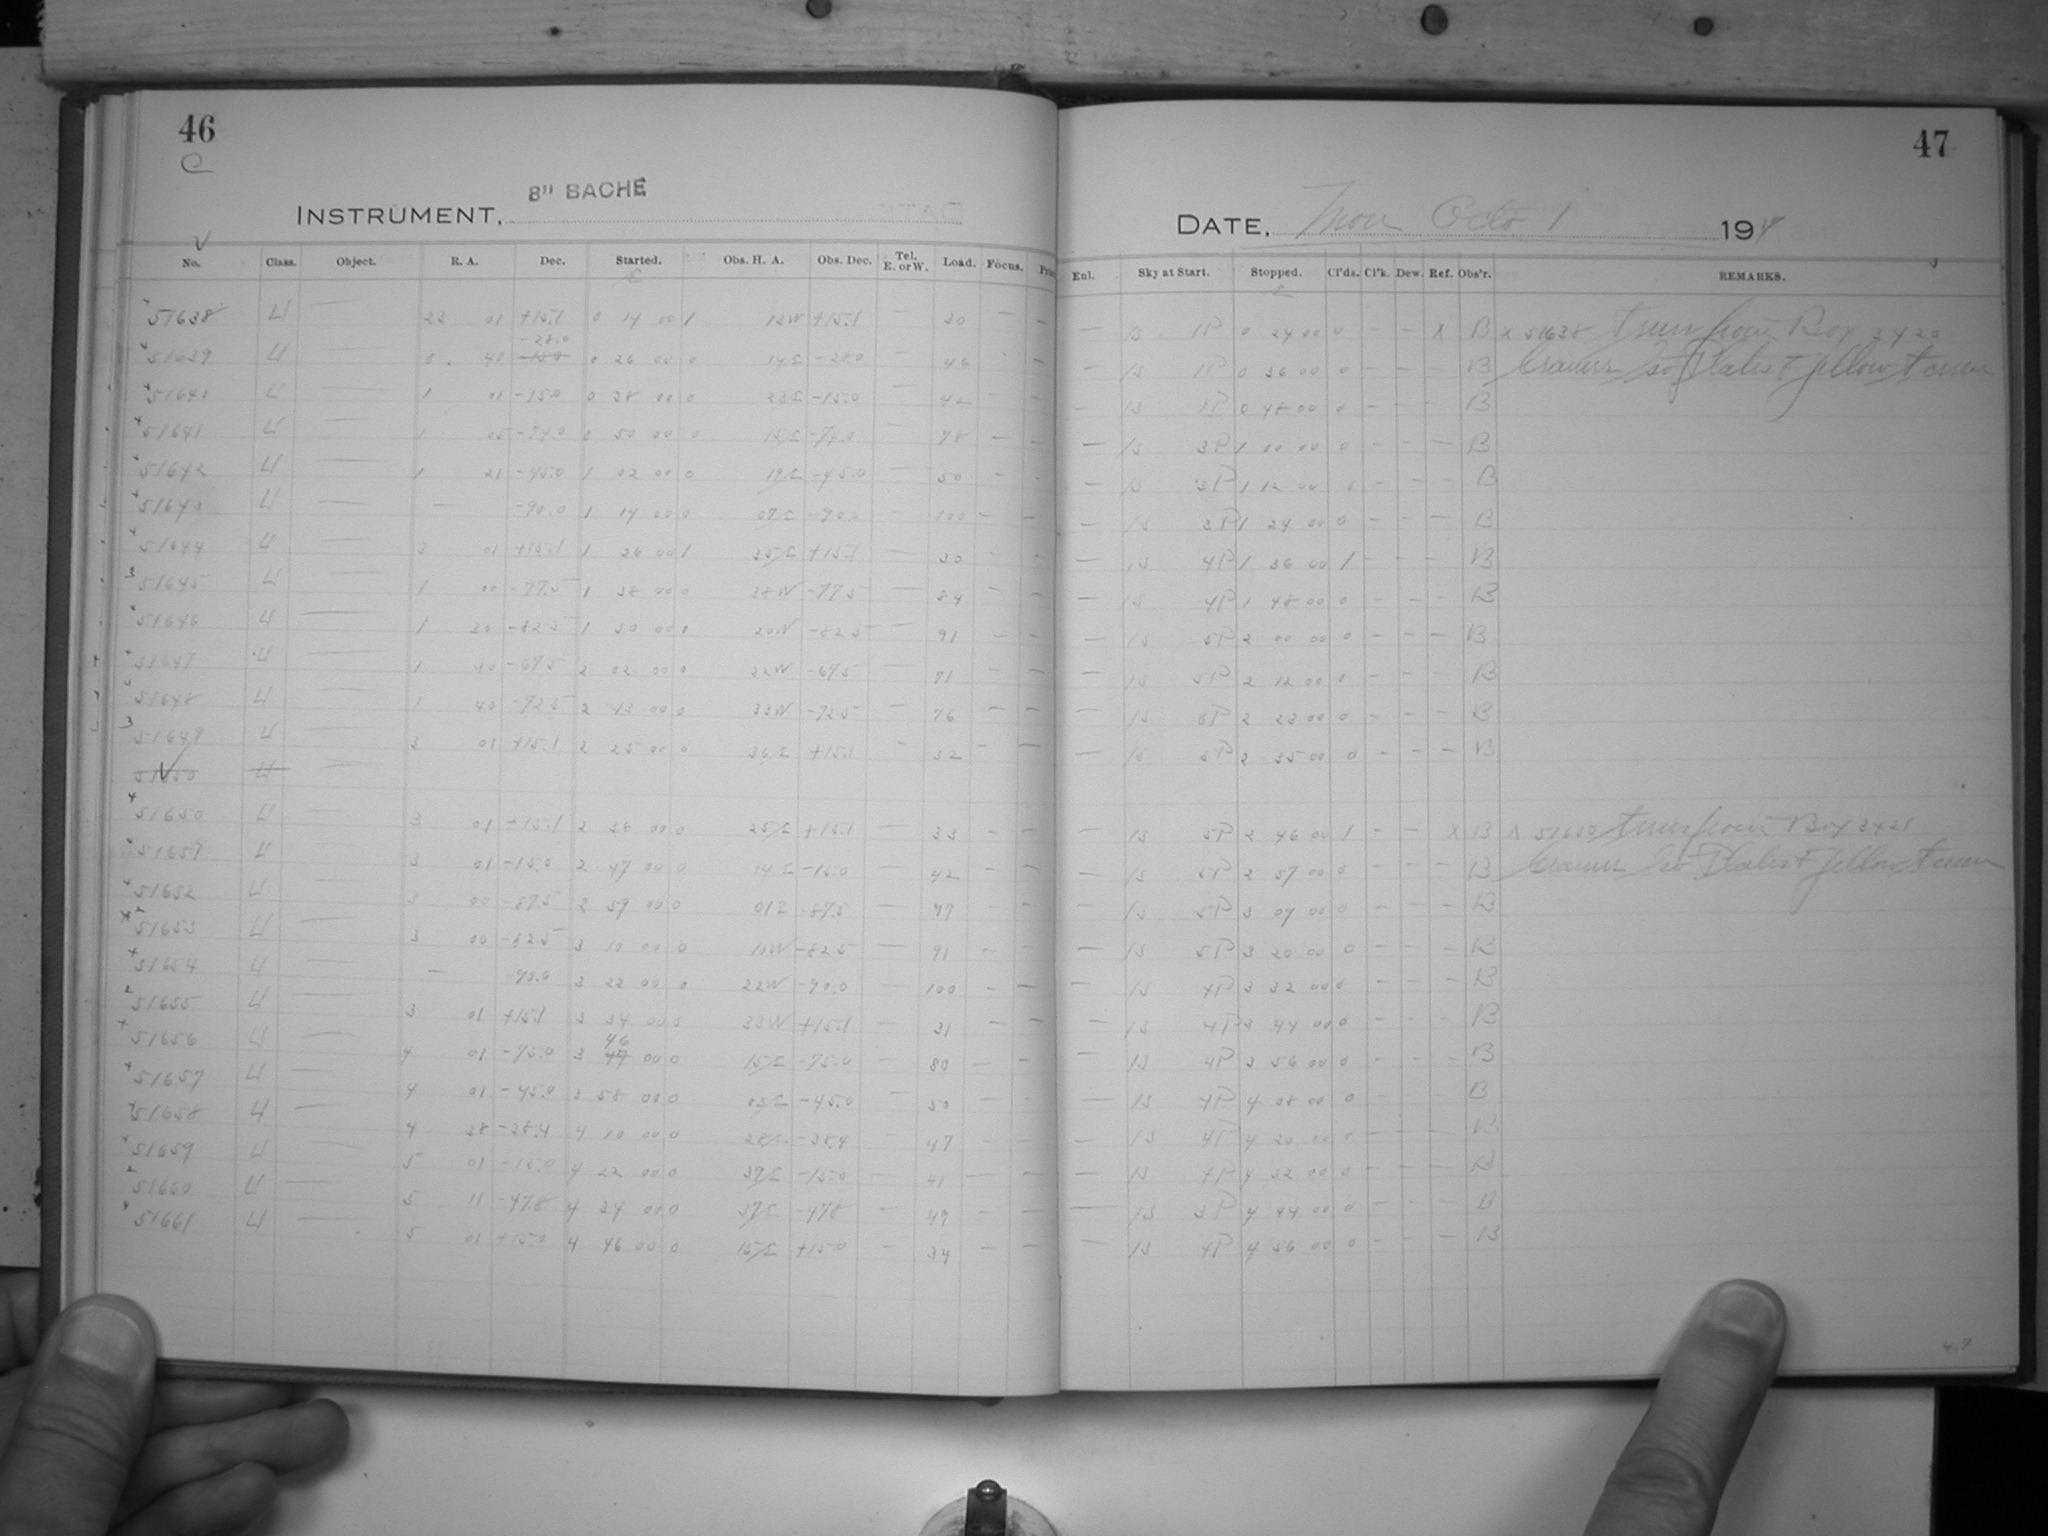 46
C
8" BACHE
INSTRUMENT,
No. Class. Object. R. A. Dec. Started. Obs. H. A. Obs. Dec. Tel. E. or W. Load. Focus.
51638 4 — 22 01 +15.1 0 14 00 1 12W +15.1 — 30 - —
-28.0
51639 4 — 0 40 0 26 00 0 14E -28.0 — 46 - —
4 — 1 01 -15.0 0 38 00 0 23E -15.0 — 42 - —
51641 4 — 1 0 50 00 0 15E — 78 — —
51642 4 — 1 21 -45.0 1 02 00 0 19E -45.0 — 50 — -
4 — — -90.0 1 14 00 0 07E -90.0 — 100 — -
51644 4 — 3 01 +15.1 1 26 00 1 35E +15.1 — 30 - -
51645 4 — 1 00 -77.5 1 38 00 0 38W -77.5 — 84 — -
51646 4 — 1 30 -82.5 1 50 00 0 20W -82.5 — 91 — —
51647 4 — 1 40 -67.5 2 02 00 0 22W -67.5 — 71 — —
51648 4 — 1 40 -72.5 2 13 00 0 33W -72.5 — 76 — —
51649 4 — 3 01 +15.1 2 25 00 0 36E +15.1 - 32 - —
51650 4 —
51650 4 — 3 01 +15.1 2 36 00 0 25E +15.1 — 33 - —
4 — 3 01 -15.0 2 47 00 0 14E -15.0 — 42 — —
51652 4 — 3 00 -67.5 2 59 00 0 01E — - -
51653 4 — 3 00 -82.5 3 10 00 0 10W -82.5 — 91 — —
51654 4 — — -90.0 3 22 00 0 22W -90.0 — 100 - —
51655 4 — 3 01 +15.1 3 34 00 0 33W +15.1 — 31 - —
46
51656 4 — 4 01 -75.0 3 00 0 15E -75.0 — 80 — —
51657 4 — 4 01 -45.0 3 58 00 0 03E -45.0 - 50 - -
51658 4 — 4 38 -28.4 4 10 00 0 28E -28.4 — 47 - —
51659 4 — 5 01 -15.0 4 22 00 0 39E -15.0 — 41 — —
51660 4 — 5 11 -47.8 4 34 00 0 37E -47.8 — 49 - —
51661 4 — 5 01 +15.0 4 46 00 0 15E +15.0 - 34 — —
47
DATE, Mon Octo 1 19
Enl. Sky at Start. Stopped. Cl'ds. Cl'k. Dew. Ref. Obs'r. REMARKS.
— 13 1P 0 24 00 0 - - X B X 51638 Box 3420
— 13 1P 0 36 00 0 - - - B Cramer Iso Plates & yellow
— 13 0 48 00 0 - - - B
— 13 3P 1 00 00 0 - - — B
— 13 3P 1 12 00 0 - - - B
— 13 3P 1 24 00 0 - - — B
— 13 4P 1 36 00 1 - - — B
— 13 4P 1 48 00 0 - - - B
— 13 5P 2 00 00 0 - - - B
— 13 5P 2 12 00 0 - - - B
— 13 5P 2 23 00 0 - - - B
— 13 5P 2 35 00 0 - - — B
— 13 5P 2 46 00 1 - - X B X 51650 Box 3421
— 13 5P 2 57 00 0 - - - B Cramer Iso Plates & yellow
— 13 5P 3 09 00 0 - - - B
— 13 5P 3 20 00 0 - - - B
— 13 4P 3 32 00 0 - - - B
— 13 4P 3 44 00 0 - - - B
— 13 4P 3 56 00 0 - - - B
— 13 4P 4 08 00 0 - B
— 13 4P 4 20 00 0 - - - B
— 13 4P 4 32 00 0 - - - B
— 13 3P 4 44 00 0 - - - B
— 13 4P 4 56 00 0 - - — B
47